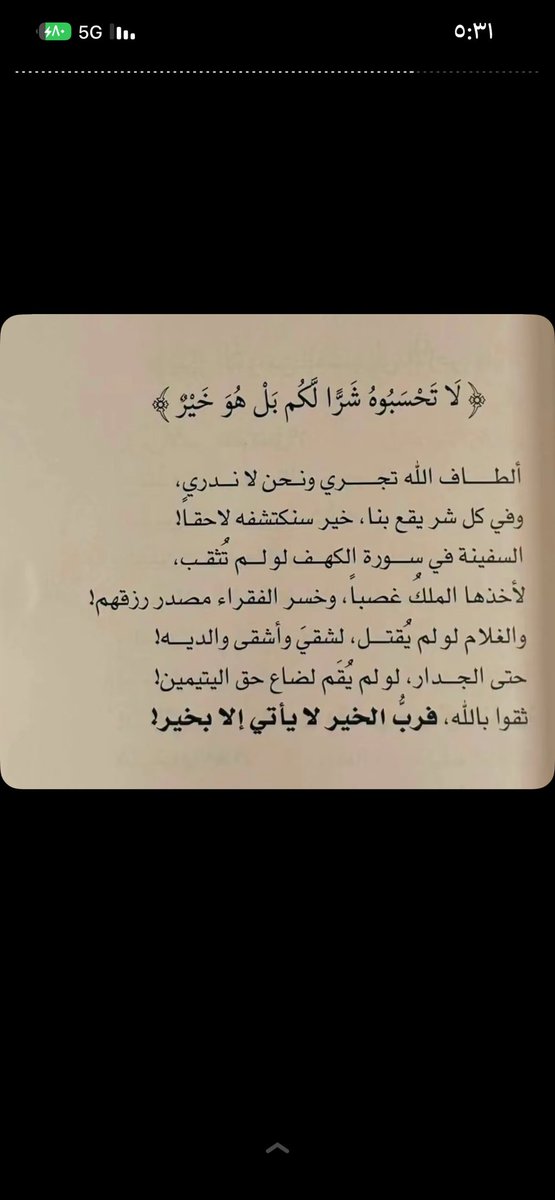 ٨٠ 5G ٥:٣١
﴿ لَا تَحْسَبُوهُ شَرًّا لَّكُم بَلْ هُوَ خَيْرٌ ﴾
ألطاف الله تجري ونحن لا ندري،
وفي كل شر يقع بنا، خير سنكتشفه لاحقاً!
السفينة في سورة الكهف لو لم تُثقب،
لأخذها الملكُ غصباً، وخسر الفقراء مصدر رزقهم!
والغلام لو لم يُقتل، لشقيَ وأشقى والديه!
حتى الجدار، لو لم يُقَم لضاع حق اليتيمين!
ثقوا بالله، فربُّ الخير لا يأتي إلا بخير!